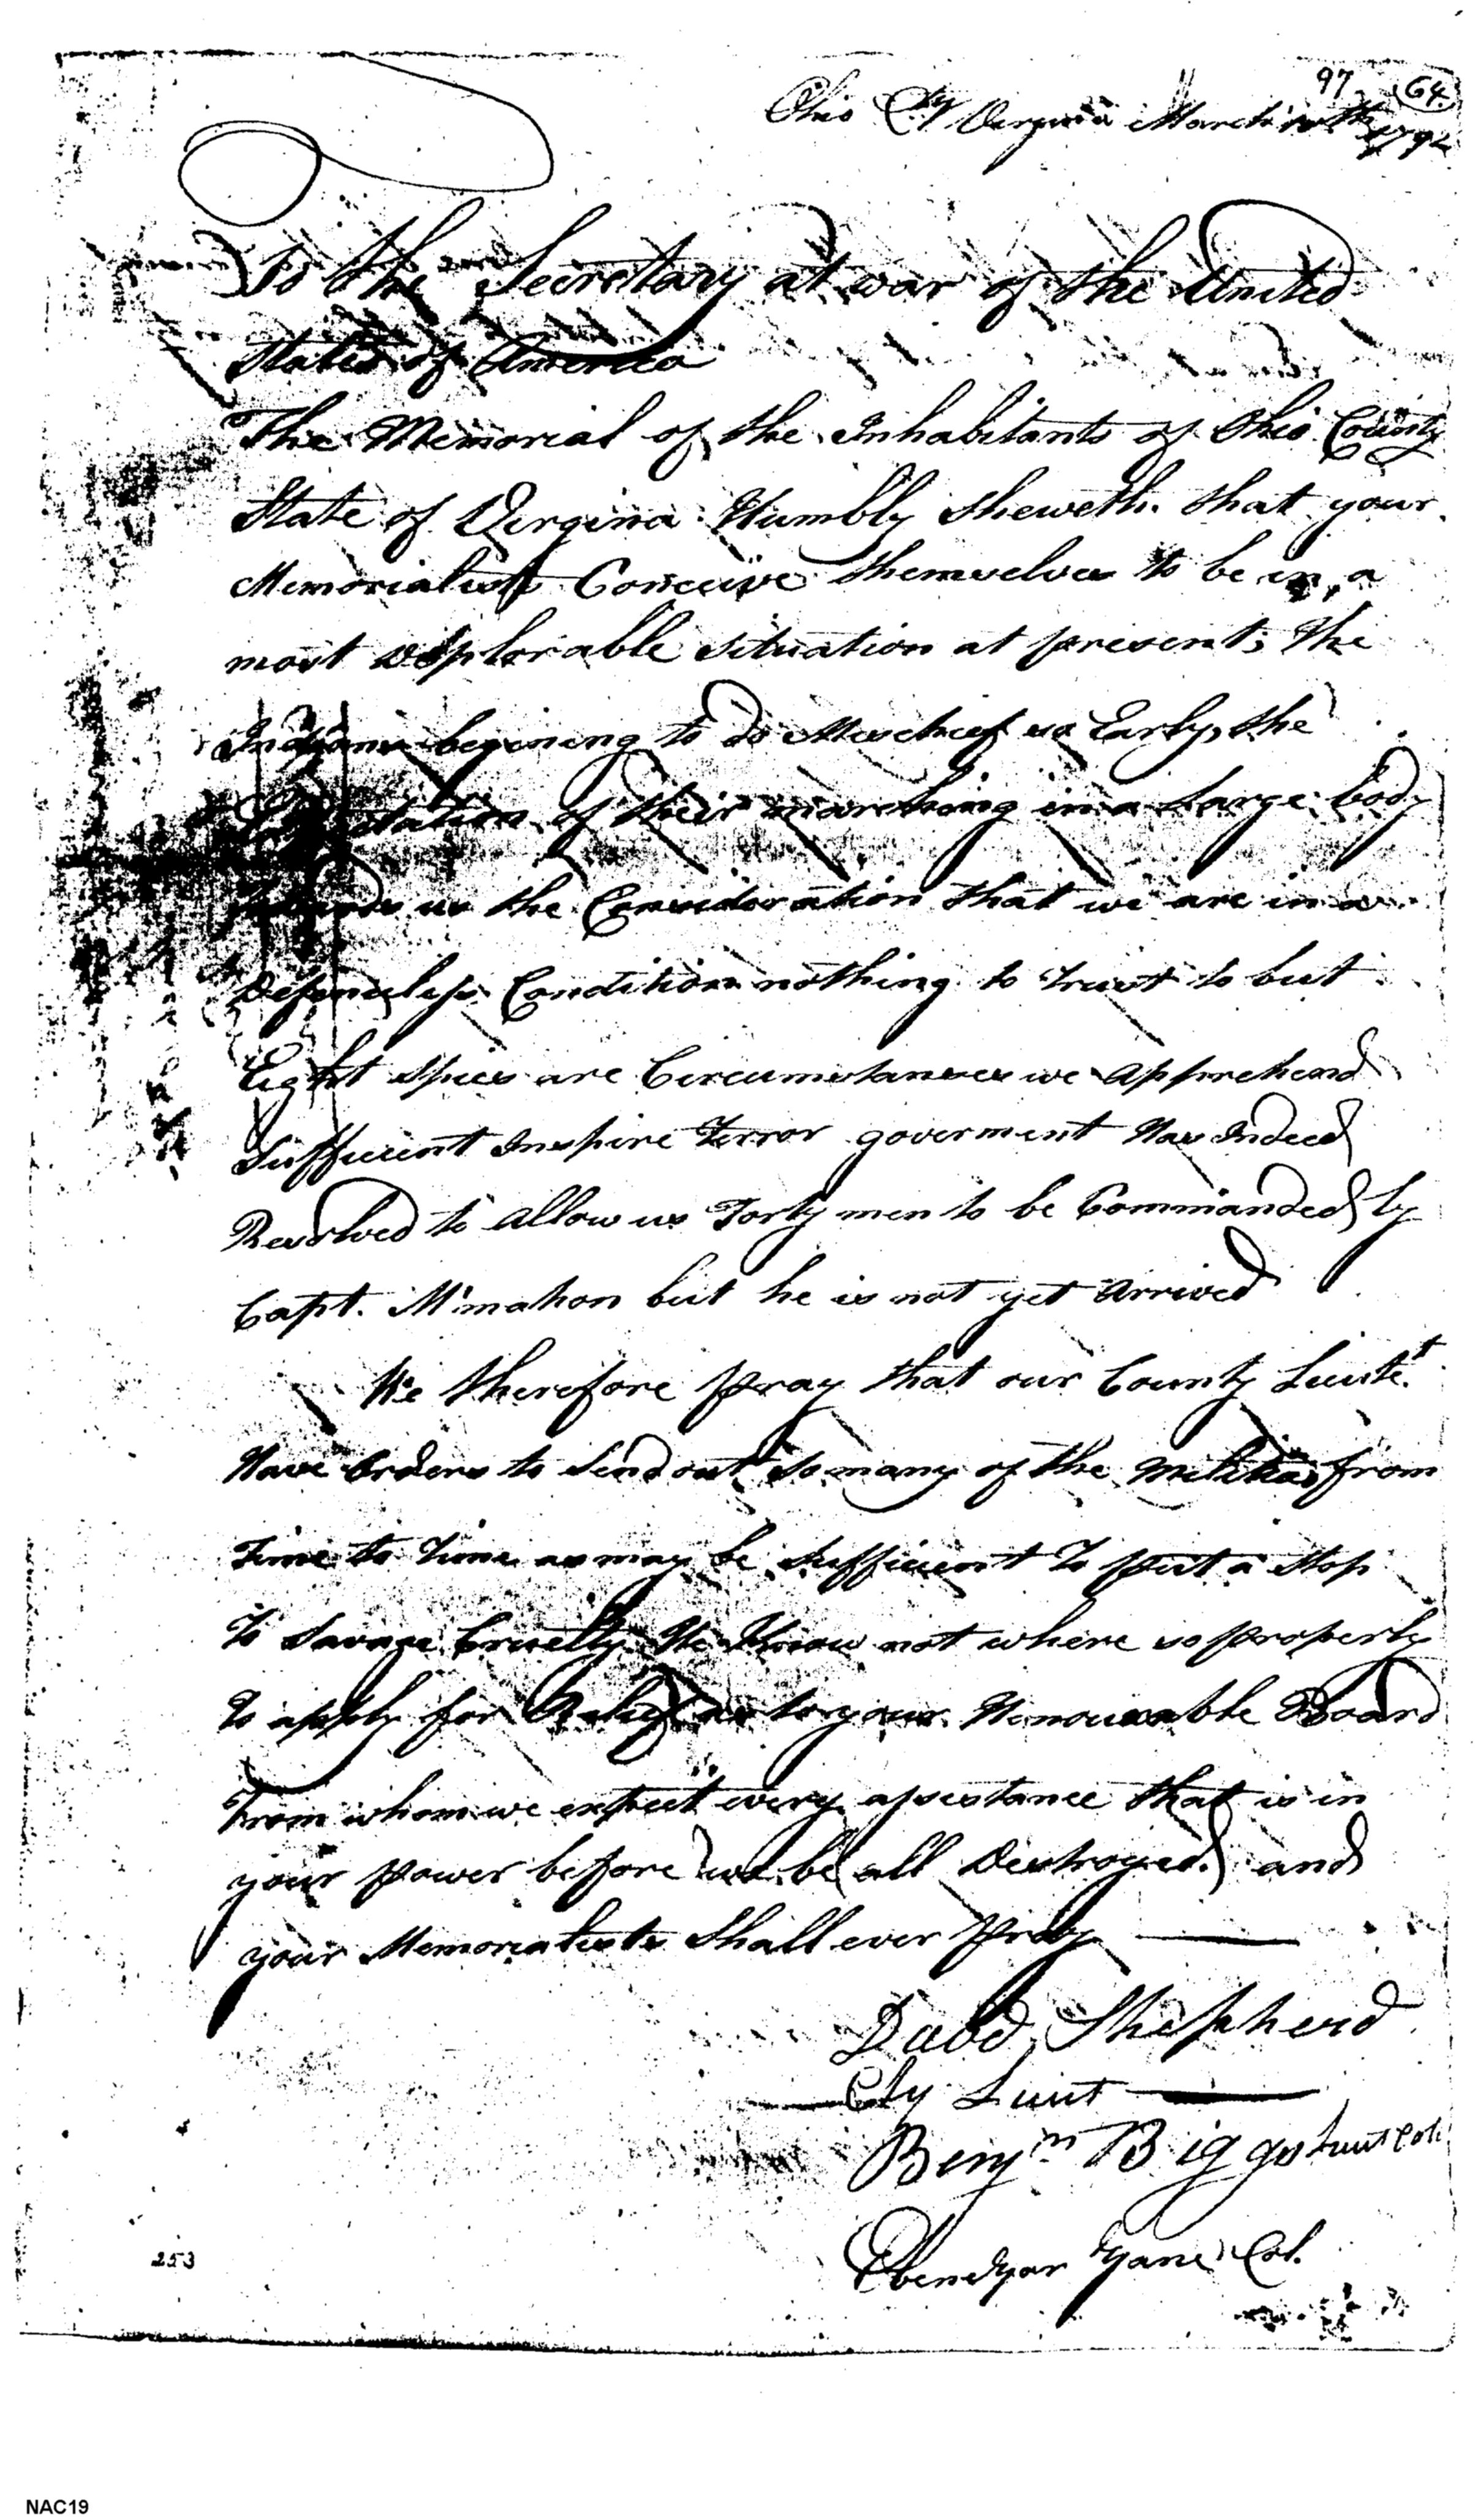 97 64
Ohio Cty Virginia March 10th 1792
To the Secretary at war of the United
States of America
The Memorial of the Inhabitants of Ohio County
State of Virgina Humbly Sheweth that your
Memorialists Conceive themselves to be in a
most deplorable situation at present; the
Indians begining to do Mischief so Early, the
of their marching in a large body
us the Consideration that we are in a
Defenceless Condition nothing to trust to but
Eight Spies are Circumstances we apprehend
Sufficient Inspire Terror goverment Has Indeed
Resolved to allow us Forty men to be Commanded by
Capt. Mcmahon but he is not yet Arrived
We therefore pray that our County Lieutt.
Have Orders to Send out so many of the militia from
Time to Time as may be Sufficient To put a stop
To Savage Cruelty We Know not where so properly
To apply for Relief as to your Honourable Board
From whom we expect every assistance that is in
your power before we be all Destroyed. and
your Memorialists Shall ever pray
David Shepherd
Cty Luut
Benjm Biggs Luut Col
Ebenezar Zane Col.
253
NAC19